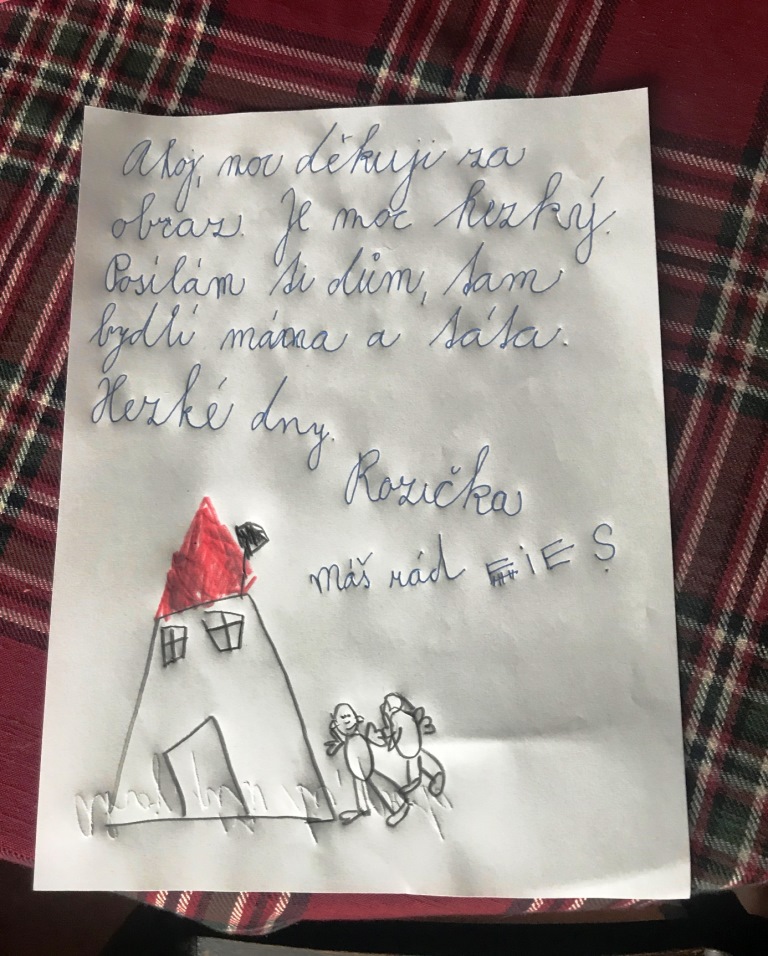 Ahoj, noc děkuji za
obraz. Je moc hezký.
Posílám ti dům, tam
bydlí máma a táta.
Hezké dny.
Rozička
máš rád EiES